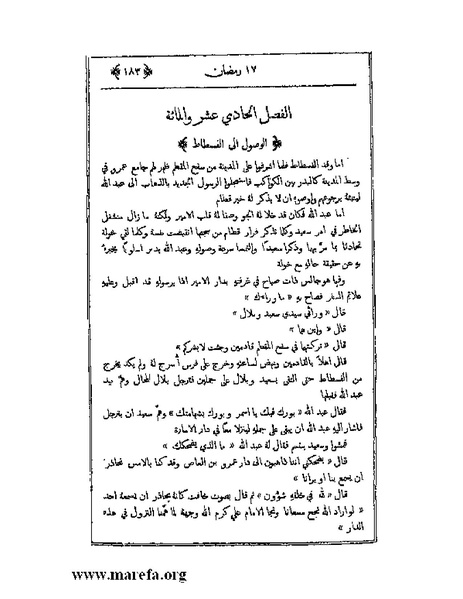 ١٧ رمضان ﴿١٨٣﴾
الفصل الحادي عشر والمائة
﴿ الوصول الى الفسطاط ﴾
اما وفد الفسطاط فلما اشرفوا على المدينة من سفح المقطم ظهر لهم جامع عمرو في
وسط المدينة كالبدر بين الكواكب فاستحثوا الرسول الجديد بالذهاب الى عبد الله
لينبئه برجوعهم واوصوه ان لا يذكر له خبر قطام
اما عبد الله فكان قد خلا له الجو وصفا له قلب الامير ولكنه ما زال منشغل
الخاطر في امر سعيد وكلما تذكر فرار قطام من سجنها انقبضت نفسه وكلما لقي خولة
تحادثا بما مرّ بهما وذكرا سعيدًا والتمسا سرعة وصوله وعبد الله يدبر يخبره
به عن حقيقة حاله مع خولة
وفيما هو جالس ذات صباح في غرفته بدار الامير اذا برسوله قد اقبل وعليه
علائم فصاح به « ما وراءك »
قال « ورائي سيدي سعيد وبلال »
قال « واين هما »
قال « تركتهما في سفح المقطم قادمين وجئت لابشركم »
قال اهلاً بالقادمين ونهض لساعته وخرج على فرس أسرج له ولم يكد يخرج
من الفسطاط حتى التقى بسعيد وبلال على جملين فترجل بلال للحال وهمّ بيد
عبد الله فقبلها
فقال عبد الله « بورك فيك يا اسمر وبورك بشهامتك » وهمّ سعيد ان يترجل
فاشار اليه عبد الله ان يبقى على جمله لينزلا معًا في دار الامارة
فمشوا وسعيد يبتسم فقال له عبد الله « ما الذي يضحكك »
قال « يضحكني اننا ذاهبون الى دار عمرو بن العاص وقد كنا بالامس نحاذر
ان يسمع بنا او يرانا »
قال « لله في خلقه شؤون » ثم قال بصوت خافت كأنه يحاذر ان يسمعه احد
« لو اراد الله نجح مسعانا ونجا الامام علي كرم الله وجهه لما همنا النزول في هذه
الدار »
www.marefa.org